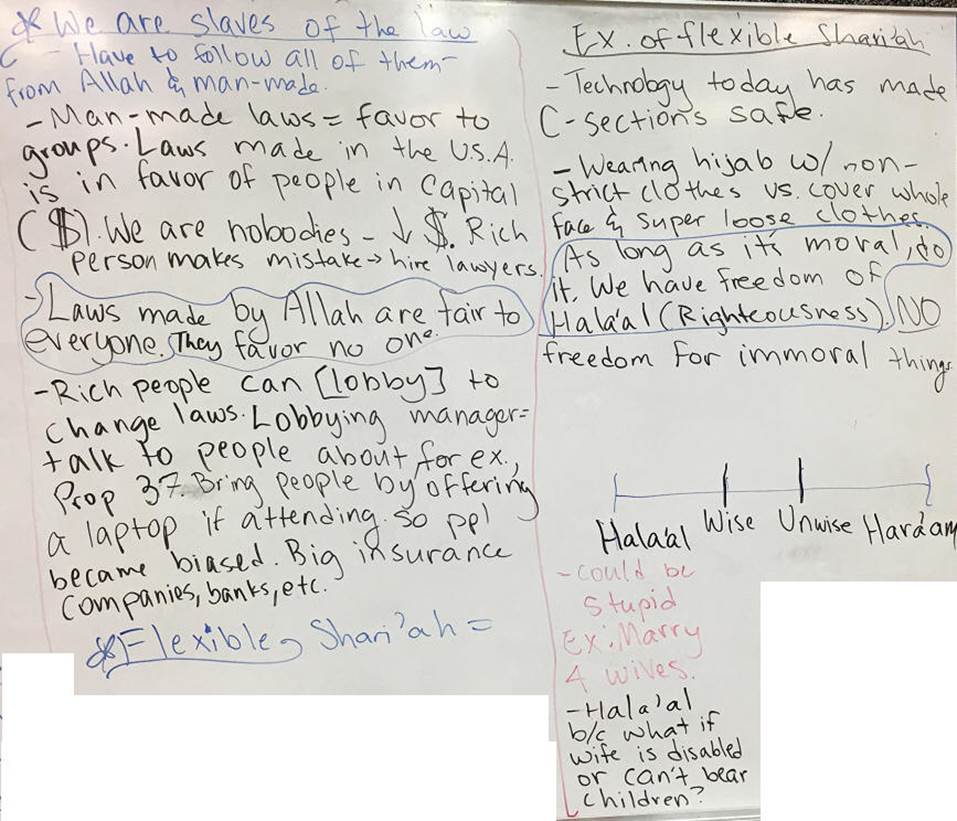 * We are slaves of the law
- Have to follow all of them-
from Allah & man-made.
- Man-made laws = favor to
groups. Laws made in the U.S.A.
is in favor of people in Capital
($). We are nobodies - ↓ $. Rich
person makes mistake → hire lawyers.
- Laws made by Allah are fair to
everyone. They favor no one.
- Rich people can [lobby] to
change laws. Lobbying manager =
talk to people about, for ex.,
Prop 37. Bring people by offering
a laptop if attending. So ppl
became biased. Big insurance
companies, banks, etc.
* Flexible Shari'ah =
Ex. of flexible Shari'ah
- Technology today has made
C-sections safe.
- Wearing hijab w/ non-
strict clothes vs. cover whole
face & super loose clothes.
As long as it's moral, do
it. We have freedom of
Hala'al (Righteousness). NO
freedom for immoral things.
Hala'al Wise Unwise Hara'am
- could be
stupid
Ex: Marry
4 wives.
- Hala'al
b/c what if
wife is disabled
or can't bear
children?